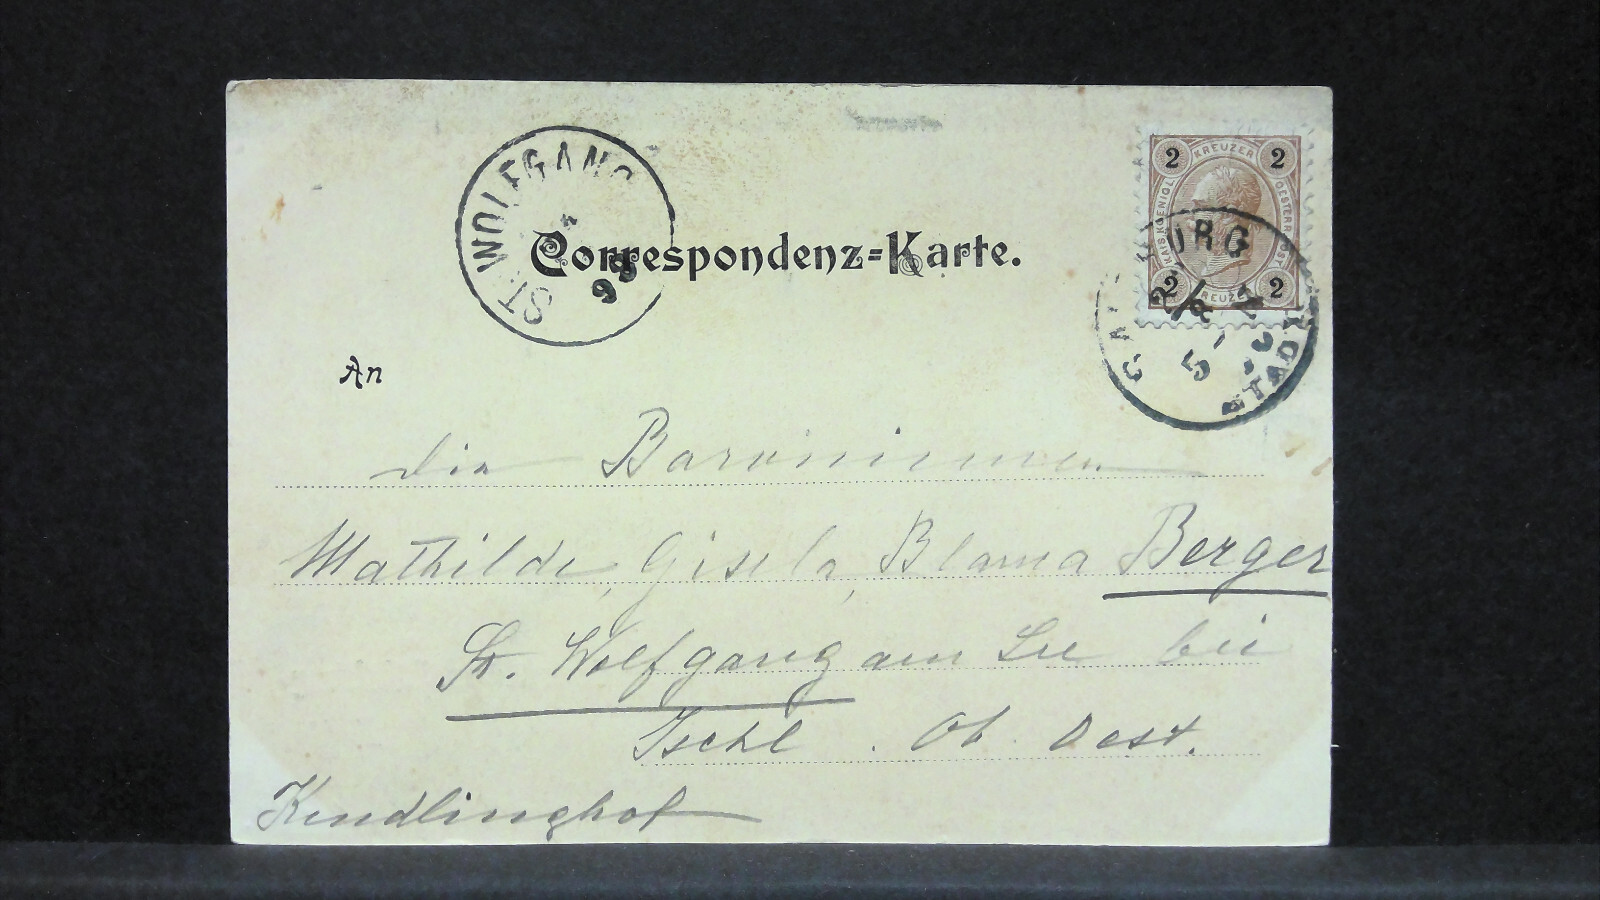 ST. WOLFGANG
98
Correspondenz-Karte.
2 KREUZER 2
KAIS. KOENIGL. OESTERR. POST
2 KREUZER 2
SALZBURG STADT
5-
An
die Baroninnen
Mathilde, Gisela, Blanca Berger
St. Wolfgang am See bei
Ischl. Ob. Oest.
Kendlinghof